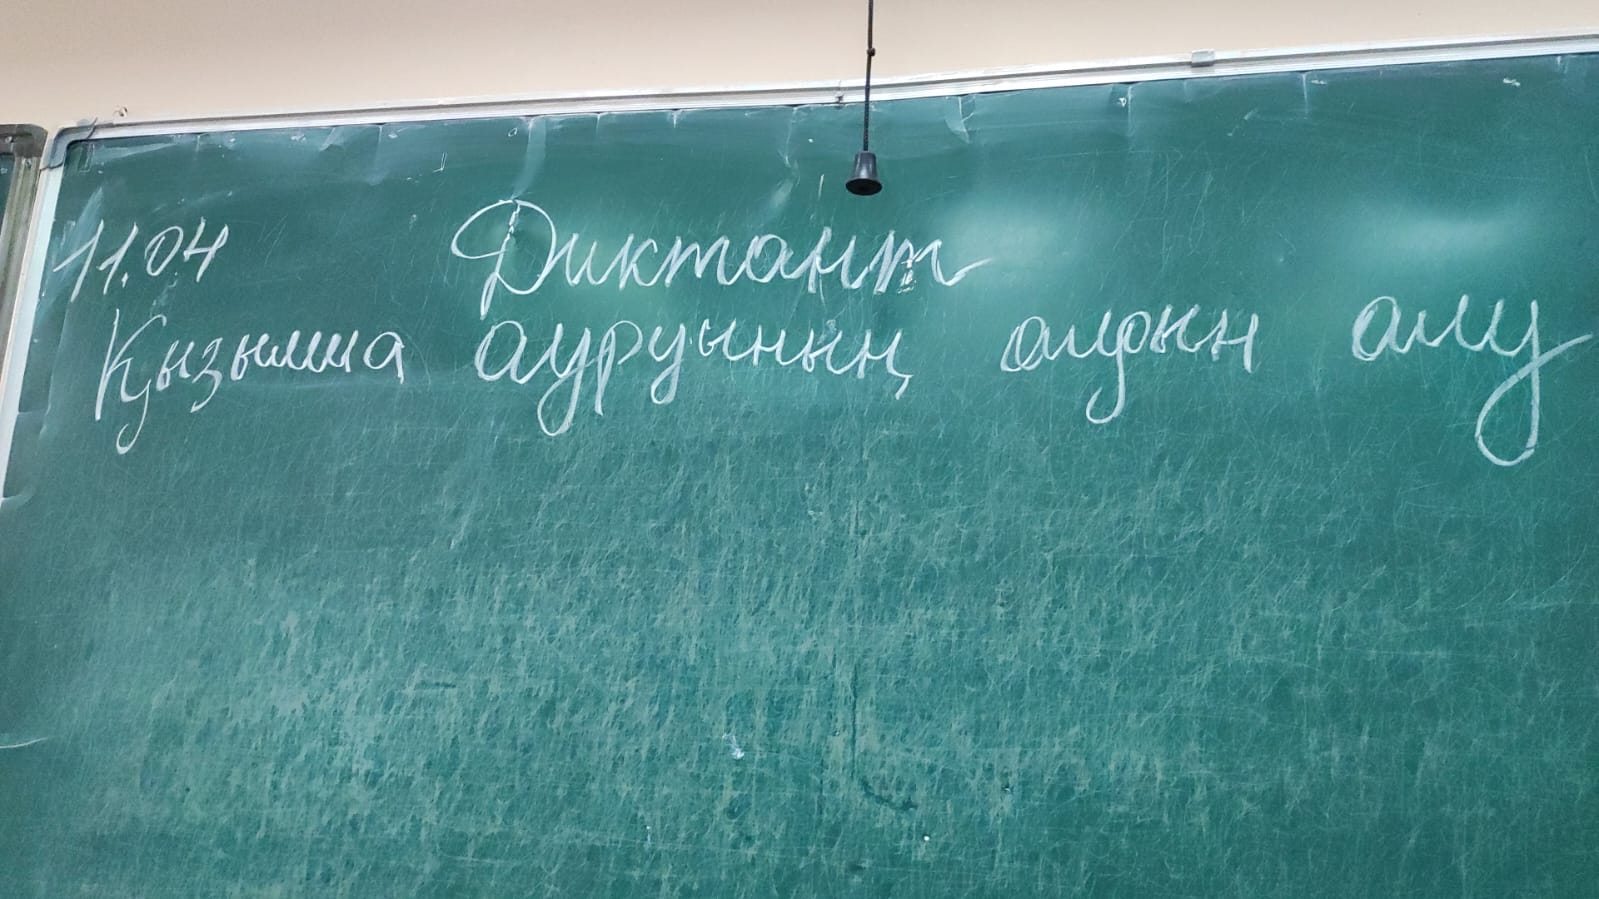 11.04 Диктант
Қызылша ауруының алдын алу